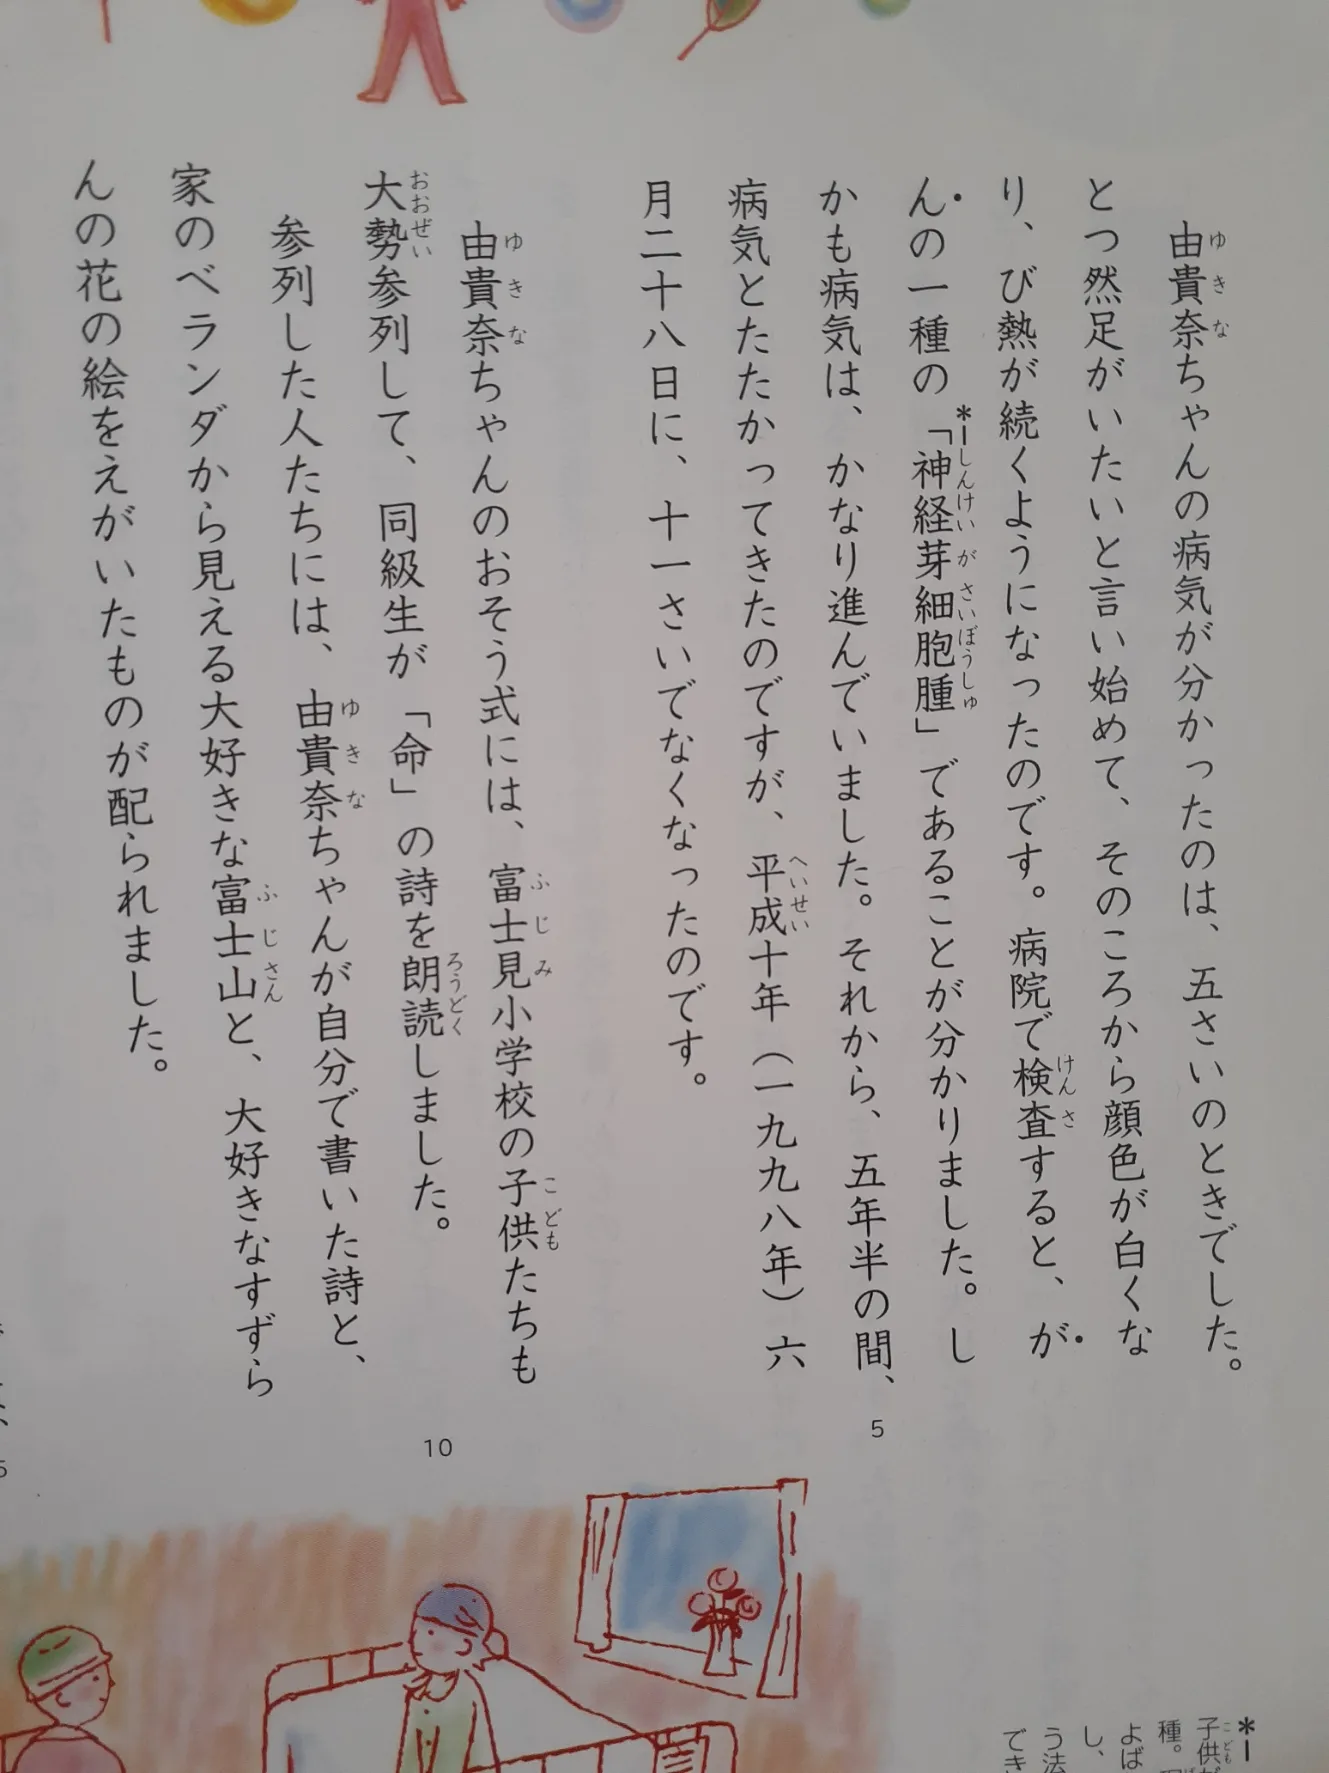 由貴奈ちゃんの病気が分かったのは、五さいのときでした。
とつ然足がいたいと言い始めて、そのころから顔色が白くな
り、び熱が続くようになったのです。病院で検査すると、が
んの一種の「神経芽細胞腫」であることが分かりました。し
かも病気は、かなり進んでいました。それから、五年半の間、
病気とたたかってきたのですが、平成十年(一九九八年)六
月二十八日に、十一さいでなくなったのです。
由貴奈ちゃんのおそう式には、富士見小学校の子供たちも
大勢参列して、同級生が「命」の詩を朗読しました。
参列した人たちには、由貴奈ちゃんが自分で書いた詩と、
家のベランダから見える大好きな富士山と、大好きなすずら
んの花の絵をえがいたものが配られました。
5
10
*1
子供
種。
よば
し、
う法
でき